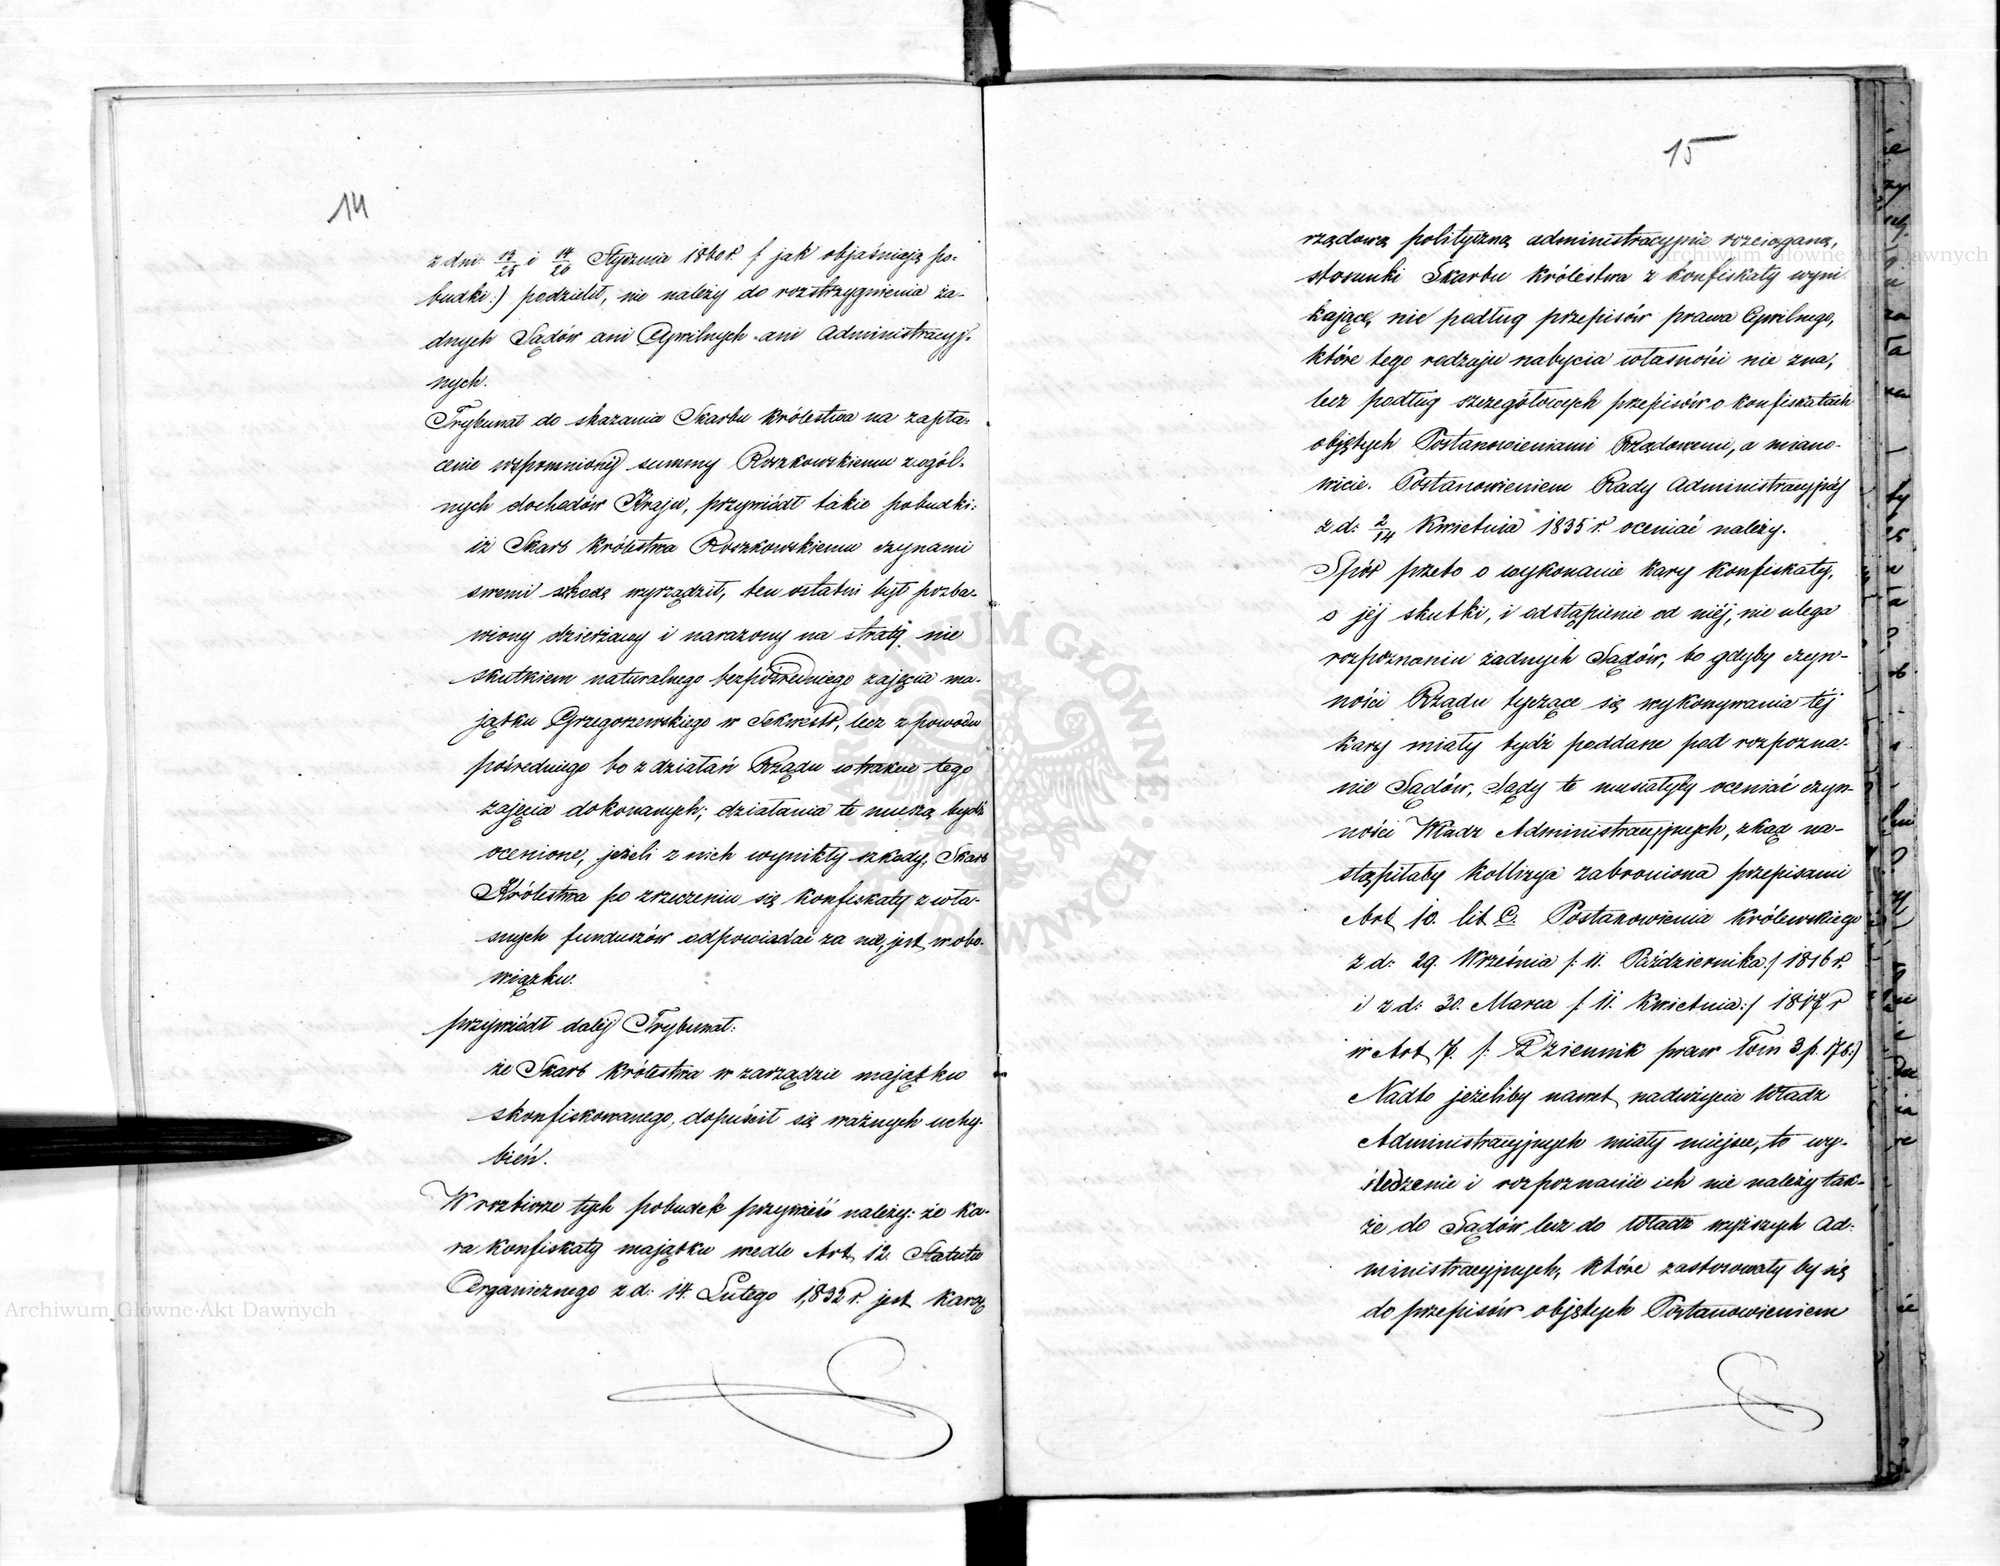 14
z dni: 13/25 i 14/26 Stycznia 1860 r. /: jak objaśniają po-
budki :/ podzielił, nie należy do rozstrzygnienia ża-
dnych Sądów ani Cywilnych ani Administracyj-
nych.
Trybunał do skazania Skarbu Królestwa na zapła-
cenie wspomnionéj summy Roszkowskiemu z ogól-
nych dochodów Kraju, przywiódł takie pobudki:
iż Skarb Królestwa Roszkowskiemu czynami
swemi szkodę wyrządził, ten ostatni był pozba-
wiony dzierżawy i narażony na stratę nie
skutkiem naturalnego bezpośredniego zajęcia ma-
jątku Grzegorzewskiego w Sekwestr, lecz z powodu
pośredniego bo z działań Rządu w trakcie tego
zajęcia dokonanych; działania te muszą bydź
ocenione, jeżeli z nich wynikły szkody, Skarb
Królestwa po zrzeczeniu się konfiskaty z wła-
snych funduszów odpowiadać za nie, jest w obo-
wiązku.
przywiódł daléj Trybunał:
że Skarb Królestwa w zarządzie majątku
skonfiskowanego, dopuścił się ważnych uchy-
bień.
W rozbiorze tych pobudek przywieść należy: że ka-
ra konfiskaty majątku wedle Art. 12. Statutu
Organicznego z d: 14 Lutego 1832 r. jest karą
15
rządową polityczną administracyjnie rozciąganą,
stosunki Skarbu Królestwa z konfiskaty wyni
kające, nie podług przepisów prawa Cywilnego,
które tego rodzaju nabycia własności nie zna,
lecz podług szczegółowych przepisów o konfiskatach
objętych Postanowieniami Rządowemi, a miano-
wicie. Postanowieniem Rady Administracyjnéj
z d: 2/14 Kwietnia 1835 r oceniać należy.
Spór przeto o wykonanie kary konfiskaty,
o jéj skutki, i odstąpienie od niéj, nie ulega
rozpoznaniu żadnych Sądów, bo gdyby czyn-
ności Rządu tyczące się wykonywania téj
kary miały bydź poddane pod rozpozna-
nie Sądów, Sądy te musiałyby oceniać czyn-
ności Władz Administracyjnych, zkąd na-
stąpiłaby kollizya zabroniona przepisami
Art 10. lit C. Postanowienia Królewskiego
z d: 29. Września /: 11. Października :/ 1816 r.
i z d: 30. Marca /: 11. Kwietnia :/ 1817 r
w Art 7. /: Dziennik praw Tom 3. p. 176 :/
Nadto jeżeliby nawet nadużycia Władz
Administracyjnych miały miejsce, to wy-
śledzenie i rozpoznanie ich nie należy tak-
że do Sądów lecz do Władz wyższych Ad-
ministracyjnych, które zastosowały by się
do przepisów objętych Postanowieniem
Archiwum Główne Akt Dawnych
Archiwum Główne Akt Dawnych
ARCHIWUM GŁÓWNE AKT DAWNYCH